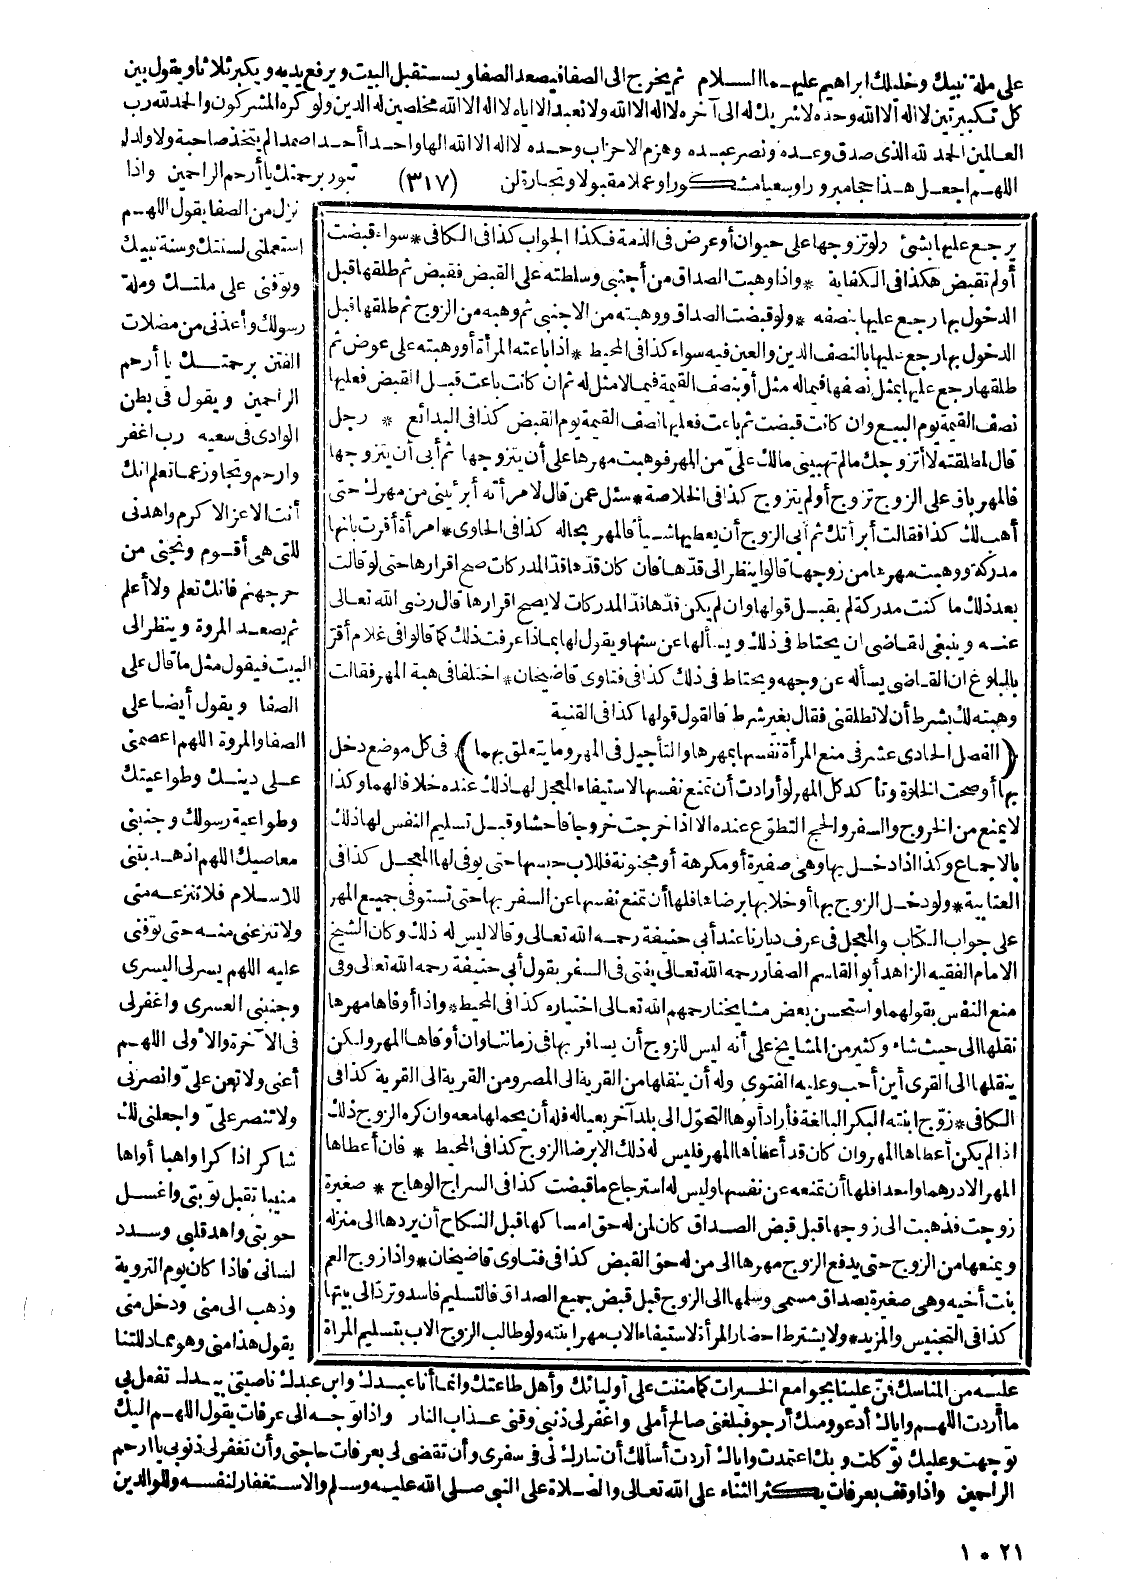 على ملة نبيك وخليلك ابراهيم عليهما السلام ثم يخرج الى الصفا فيصعد الصفا ويستقبل البيت ويرفع يديه ويكبر ثلاثا ويقول بين
كل تكبيرتين لا اله الا الله وحده لا شريك له الى آخره لا اله الا الله ولا نعبد الا اياه لا اله الا الله مخلصين له الدين ولو كره المشركون والحمد لله رب
العالمين الحمد لله الذى صدق وعده ونصر عبده وهزم الاحزاب وحده لا اله الا الله الها واحدا أحدا صمدا لم يتخذ صاحبة ولا ولدا
اللهم اجعل هذا حجا مبرورا وسعيا مشكورا وعملا مقبولا وتجارة لن (٣١٧) تبور برحمتك يا أرحم الراحمين واذا
نزل من الصفا يقول اللهم
استعملنى لسنتك وسنة نبيك
وتوفنى على ملتك وملة
رسولك وأعذنى من مضلات
الفتن برحمتك يا أرحم
الراحمين ويقول فى بطن
الوادى فى سعيه رب اغفر
وارحم وتجاوز عما تعلم انك
أنت الاعز الاكرم واهدنى
للتى هى أقوم ونجنى من
حر جهنم فانك تعلم ولا أعلم
ثم يصعد المروة وينظر الى
البيت فيقول مثل ما قال على
الصفا ويقول أيضا على
الصفا والمروة اللهم اعصمنى
على دينك وطواعيتك
وطواعية رسولك وجنبنى
معاصيك اللهم اذ هديتنى
للاسلام فلا تنزعه منى
ولا تنزعنى منه حتى توفنى
عليه اللهم يسر لى اليسرى
وجنبنى العسرى واغفر لى
فى الآخرة والأولى اللهم
أعنى ولا تعن علىّ وانصرنى
ولا تنصر علىّ واجعلنى لك
شاكرا ذاكرا واهبا أواها
منيبا تقبل توبتى واغسل
حوبتى واهد قلبى وسدد
لسانى فاذا كان يوم التروية
وذهب الى منى ودخل منى
يقول هذا منى وهو مما دللتنا
يرجع عليها بشئ ولو تزوجها على حيوان أو عرض فى الذمة فكذا الجواب كذا فى الكافى * سواء قبضت
أو لم تقبض هكذا فى الكفاية * واذا وهبت الصداق من أجنبى وسلطته على القبض فقبض ثم طلقها قبل
الدخول بها رجع عليها بنصفه * ولو قبضت الصداق ووهبته من الاجنبى ثم وهبه من الزوج ثم طلقها قبل
الدخول بها رجع عليها بالنصف الدين والعين فيه سواء كذا فى المحيط * اذا باعته المرأة أو وهبته على عوض ثم
طلقها رجع عليها بمثل نصفها فيما له مثل أو بنصف القيمة فيما لا مثل له ثم ان كانت باعت قبل القبض فعليها
نصف القيمة يوم البيع وان كانت قبضت ثم باعت فعليها نصف القيمة يوم القبض كذا فى البدائع * رجل
قال لمطلقته لا أتزوجك ما لم تهبينى مالك علىّ من المهر فوهبت مهرها على أن يتزوجها ثم أبى أن يتزوجها
فالمهر باق على الزوج تزوج أو لم يتزوج كذا فى الخلاصة * سئل عمن قال لامرأته أبرئينى من مهرك حتى
أهب لك كذا فقالت أبرأتك ثم أبى الزوج أن يعطيها شيأ فالمهر بحاله كذا فى الحاوى * امرأة أقرت بانها
مدركة ووهبت مهرها من زوجها قالوا ينظر الى قدها فان كان قدها قد المدركات صح اقرارها حتى لو قالت
بعد ذلك ما كنت مدركة لم يقبل قولها وان لم يكن قدها قد المدركات لا يصح اقرارها قال رضى الله تعالى
عنه وينبغى للقاضى ان يحتاط فى ذلك ويسألها عن سنها ويقول لها بماذا عرفت ذلك كما قالوا فى غلام أقر
بالبلوغ ان القاضى يسأله عن وجهه ويحتاط فى ذلك كذا فى فتاوى قاضيخان * اختلفا فى هبة المهر فقالت
وهبته لك بشرط أن لا تطلقنى فقال بغير شرط فالقول قولها كذا فى القنية
(الفصل الحادى عشر فى منع المرأة نفسها بمهرها والتأجيل فى المهر وما يتعلق بهما) فى كل موضع دخل
بها أو صحت الخلوة وتأكد كل المهر لو أرادت أن تمنع نفسها لاستيفاء المعجل لها ذلك عنده خلافا لهما وكذا
لا يمنع من الخروج والسفر والحج التطوع عنده الا اذا خرجت خروجا فاحشا وقبل تسليم النفس لها ذلك
بالاجماع وكذا اذا دخل بها وهى صغيرة أو مكرهة أو مجنونة فللاب حبسها حتى يوفى لها المعجل كذا فى
العتابية * ولو دخل الزوج بها أو خلا بها برضاها فلها أن تمنع نفسها عن السفر بها حتى تستوفى جميع المهر
على جواب الكتاب والمعجل فى عرف ديارنا عند أبى حنيفة رحمه الله تعالى وقالا ليس له ذلك وكان الشيخ
الامام الفقيه الزاهد أبو القاسم الصفار رحمه الله تعالى يفتى فى السفر بقول أبى حنيفة رحمه الله تعالى وفى
منع النفس بقولهما واستحسن بعض مشايخنا رحمهم الله تعالى اختياره كذا فى المحيط * واذا أوفاها مهرها
نقلها الى حيث شاء وكثير من المشايخ على أنه ليس للزوج أن يسافر بها فى زماننا وان أوفاها المهر ولكن
ينقلها الى القرى أين أحب وعليه الفتوى وله أن ينقلها من القرية الى المصر ومن القرية الى القرية كذا فى
الكافى * زوّج ابنته البكر البالغة فأراد أبوها التحوّل الى بلد آخر بعياله فله أن يحملها معه وان كره الزوج ذلك
اذا لم يكن أعطاها المهر وان كان قد أعطاها المهر فليس له ذلك الا برضا الزوج كذا فى المحيط * فان أعطاها
المهر الا درهما واحدا فلها أن تمنعه عن نفسها وليس له استرجاع ما قبضت كذا فى السراج الوهاج * صغيرة
زوجت فذهبت الى زوجها قبل قبض الصداق كان لمن له حق امساكها قبل النكاح أن يردها الى منزله
ويمنعها من الزوج حتى يدفع الزوج مهرها الى من له حق القبض كذا فى فتاوى قاضيخان * واذا زوج العم
بنت أخيه وهى صغيرة بصداق مسمى وسلمها الى الزوج قبل قبض جميع الصداق فالتسليم فاسد وتردّ الى بيتها
كذا فى التجنيس والمزيد * ولا يشترط احضار المرأة لاستيفاء الاب مهر ابنته ولو طالب الزوج الاب بتسليم المرأة
عليه من المناسك فمنّ علينا بجوامع الخيرات كما مننت على أوليائك وأهل طاعتك وانما أنا عبدك وابن عبدك ناصيتى بيدك تفعل بى
ما أردت اللهم واياك أدعو ومنك أرجو فبلغنى صالح أملى واغفر لى ذنبى وقنى عذاب النار واذا توجه الى عرفات يقول اللهم اليك
توجهت وعليك توكلت وبك اعتمدت واياك أردت أسألك أن تبارك لى فى سفرى وأن تقضى لى بعرفات حاجتى وأن تغفر لى ذنوبى يا ارحم
الراحمين واذا وقف بعرفات يكثر الثناء على الله تعالى والصلاة على النبى صلى الله عليه وسلم والاستغفار لنفسه وللوالدين
١٠٢١